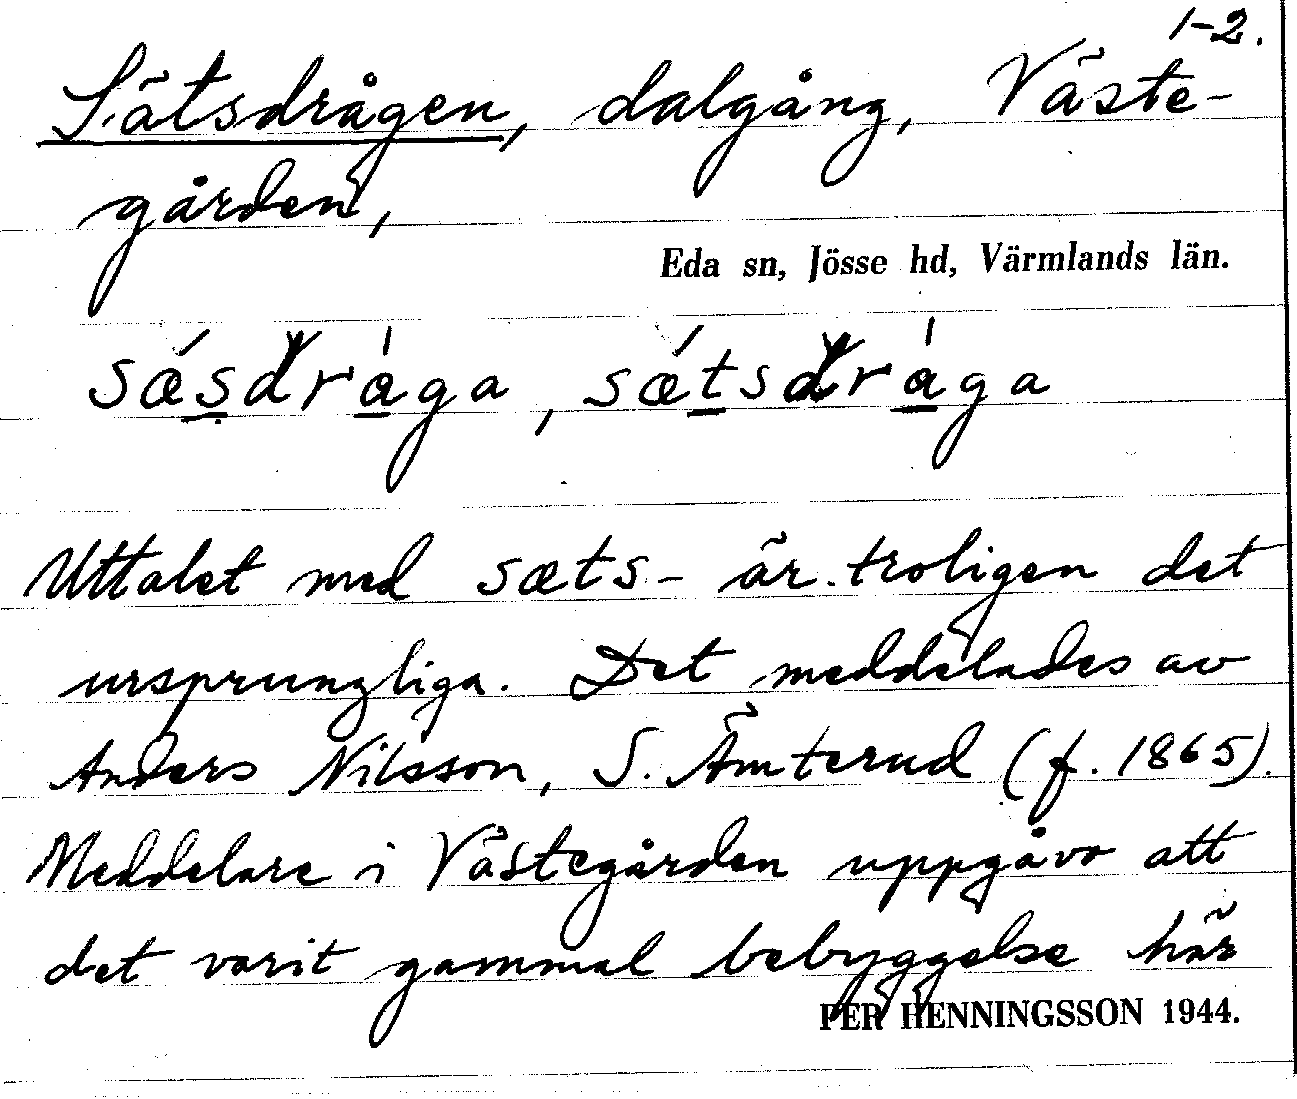 1-2.
Sätsdrågen, dalgång, Väste-
gården,
Eda sn, Jösse hd, Värmlands län.
sǽsdråga, sǽtsdråga
Uttalet med sæts- är troligen det
ursprungliga. Det meddelades av
Anders Nilsson, S. Ämterud (f. 1865).
Meddelare i Västegården uppgåvo att
det varit gammal bebyggelse här
PER HENNINGSSON 1944.